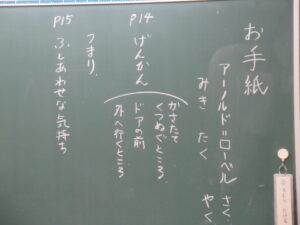 お手紙
アーノルド=ローベル さく
みき たく やく
P14.
げんかん
かさたて
くつぬぐところ
ドアの前
外へ行くところ
つまり、
P15
ふしあわせな気持ち